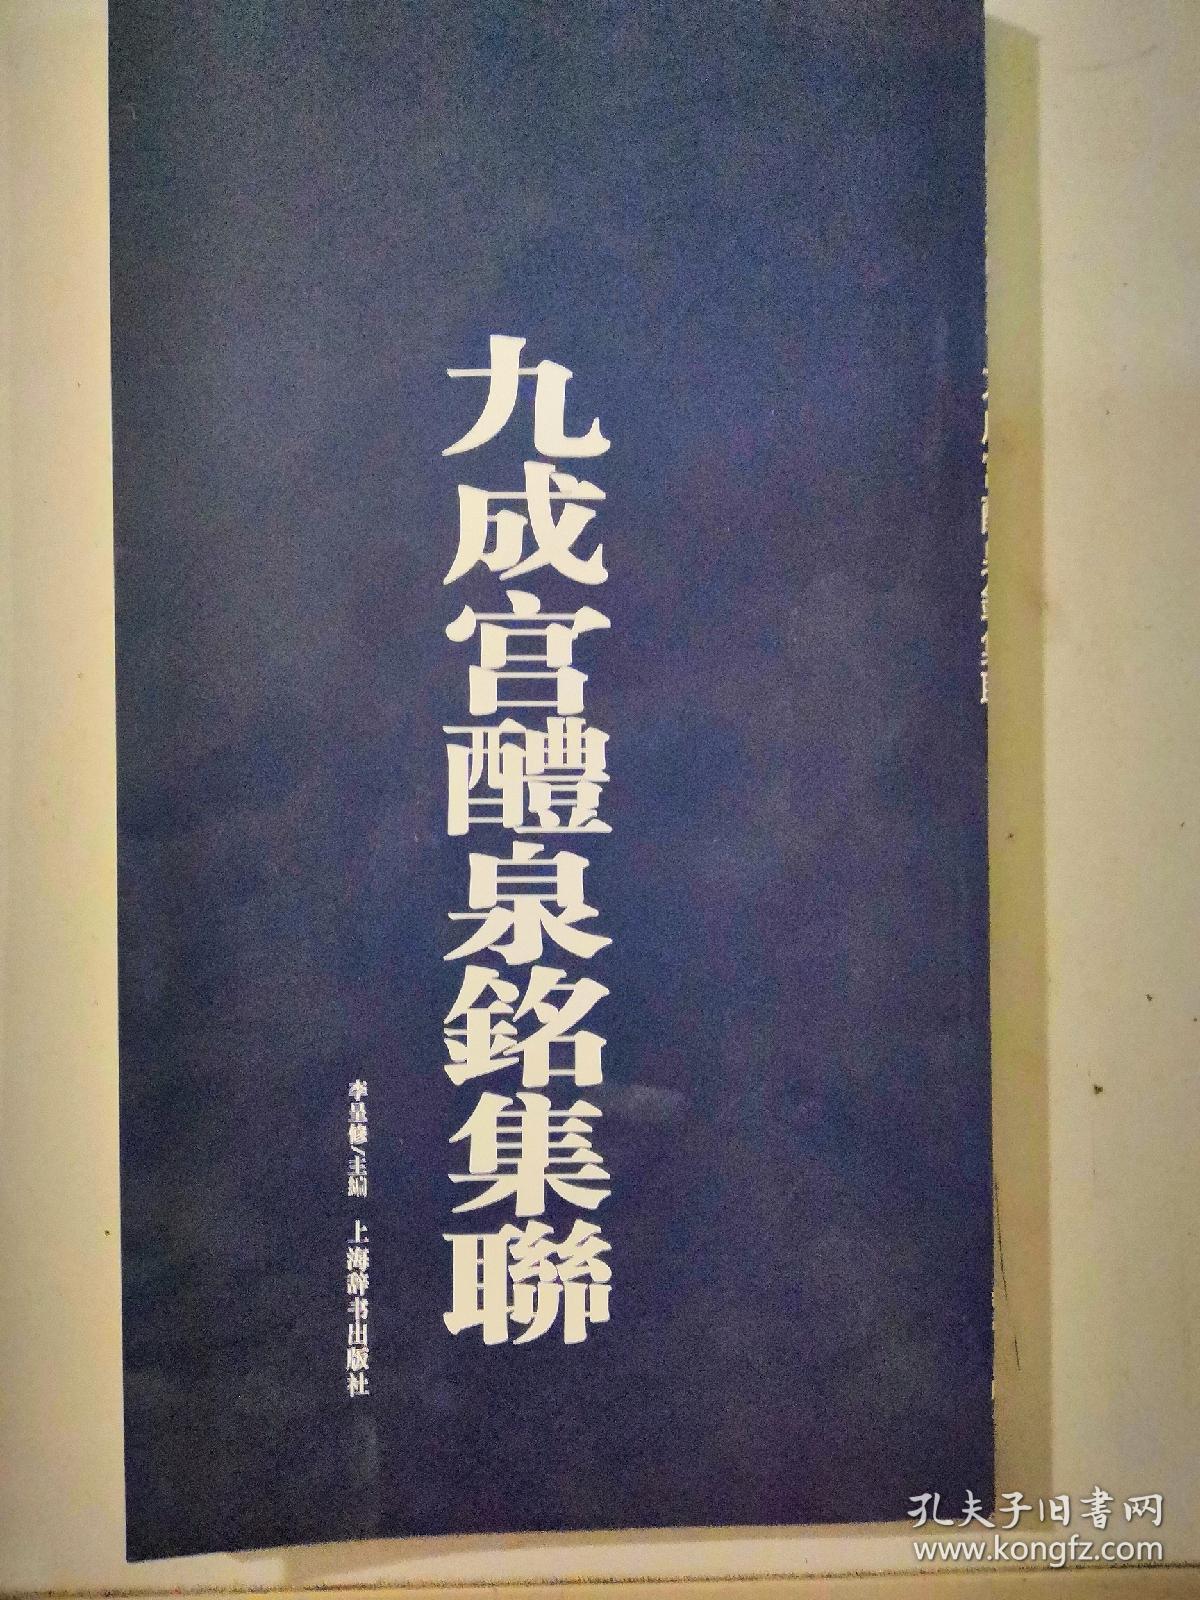 九成宫醴泉銘集聯
李呈修/主编 上海辞书出版社
孔夫子旧書网
www.kongfz.com